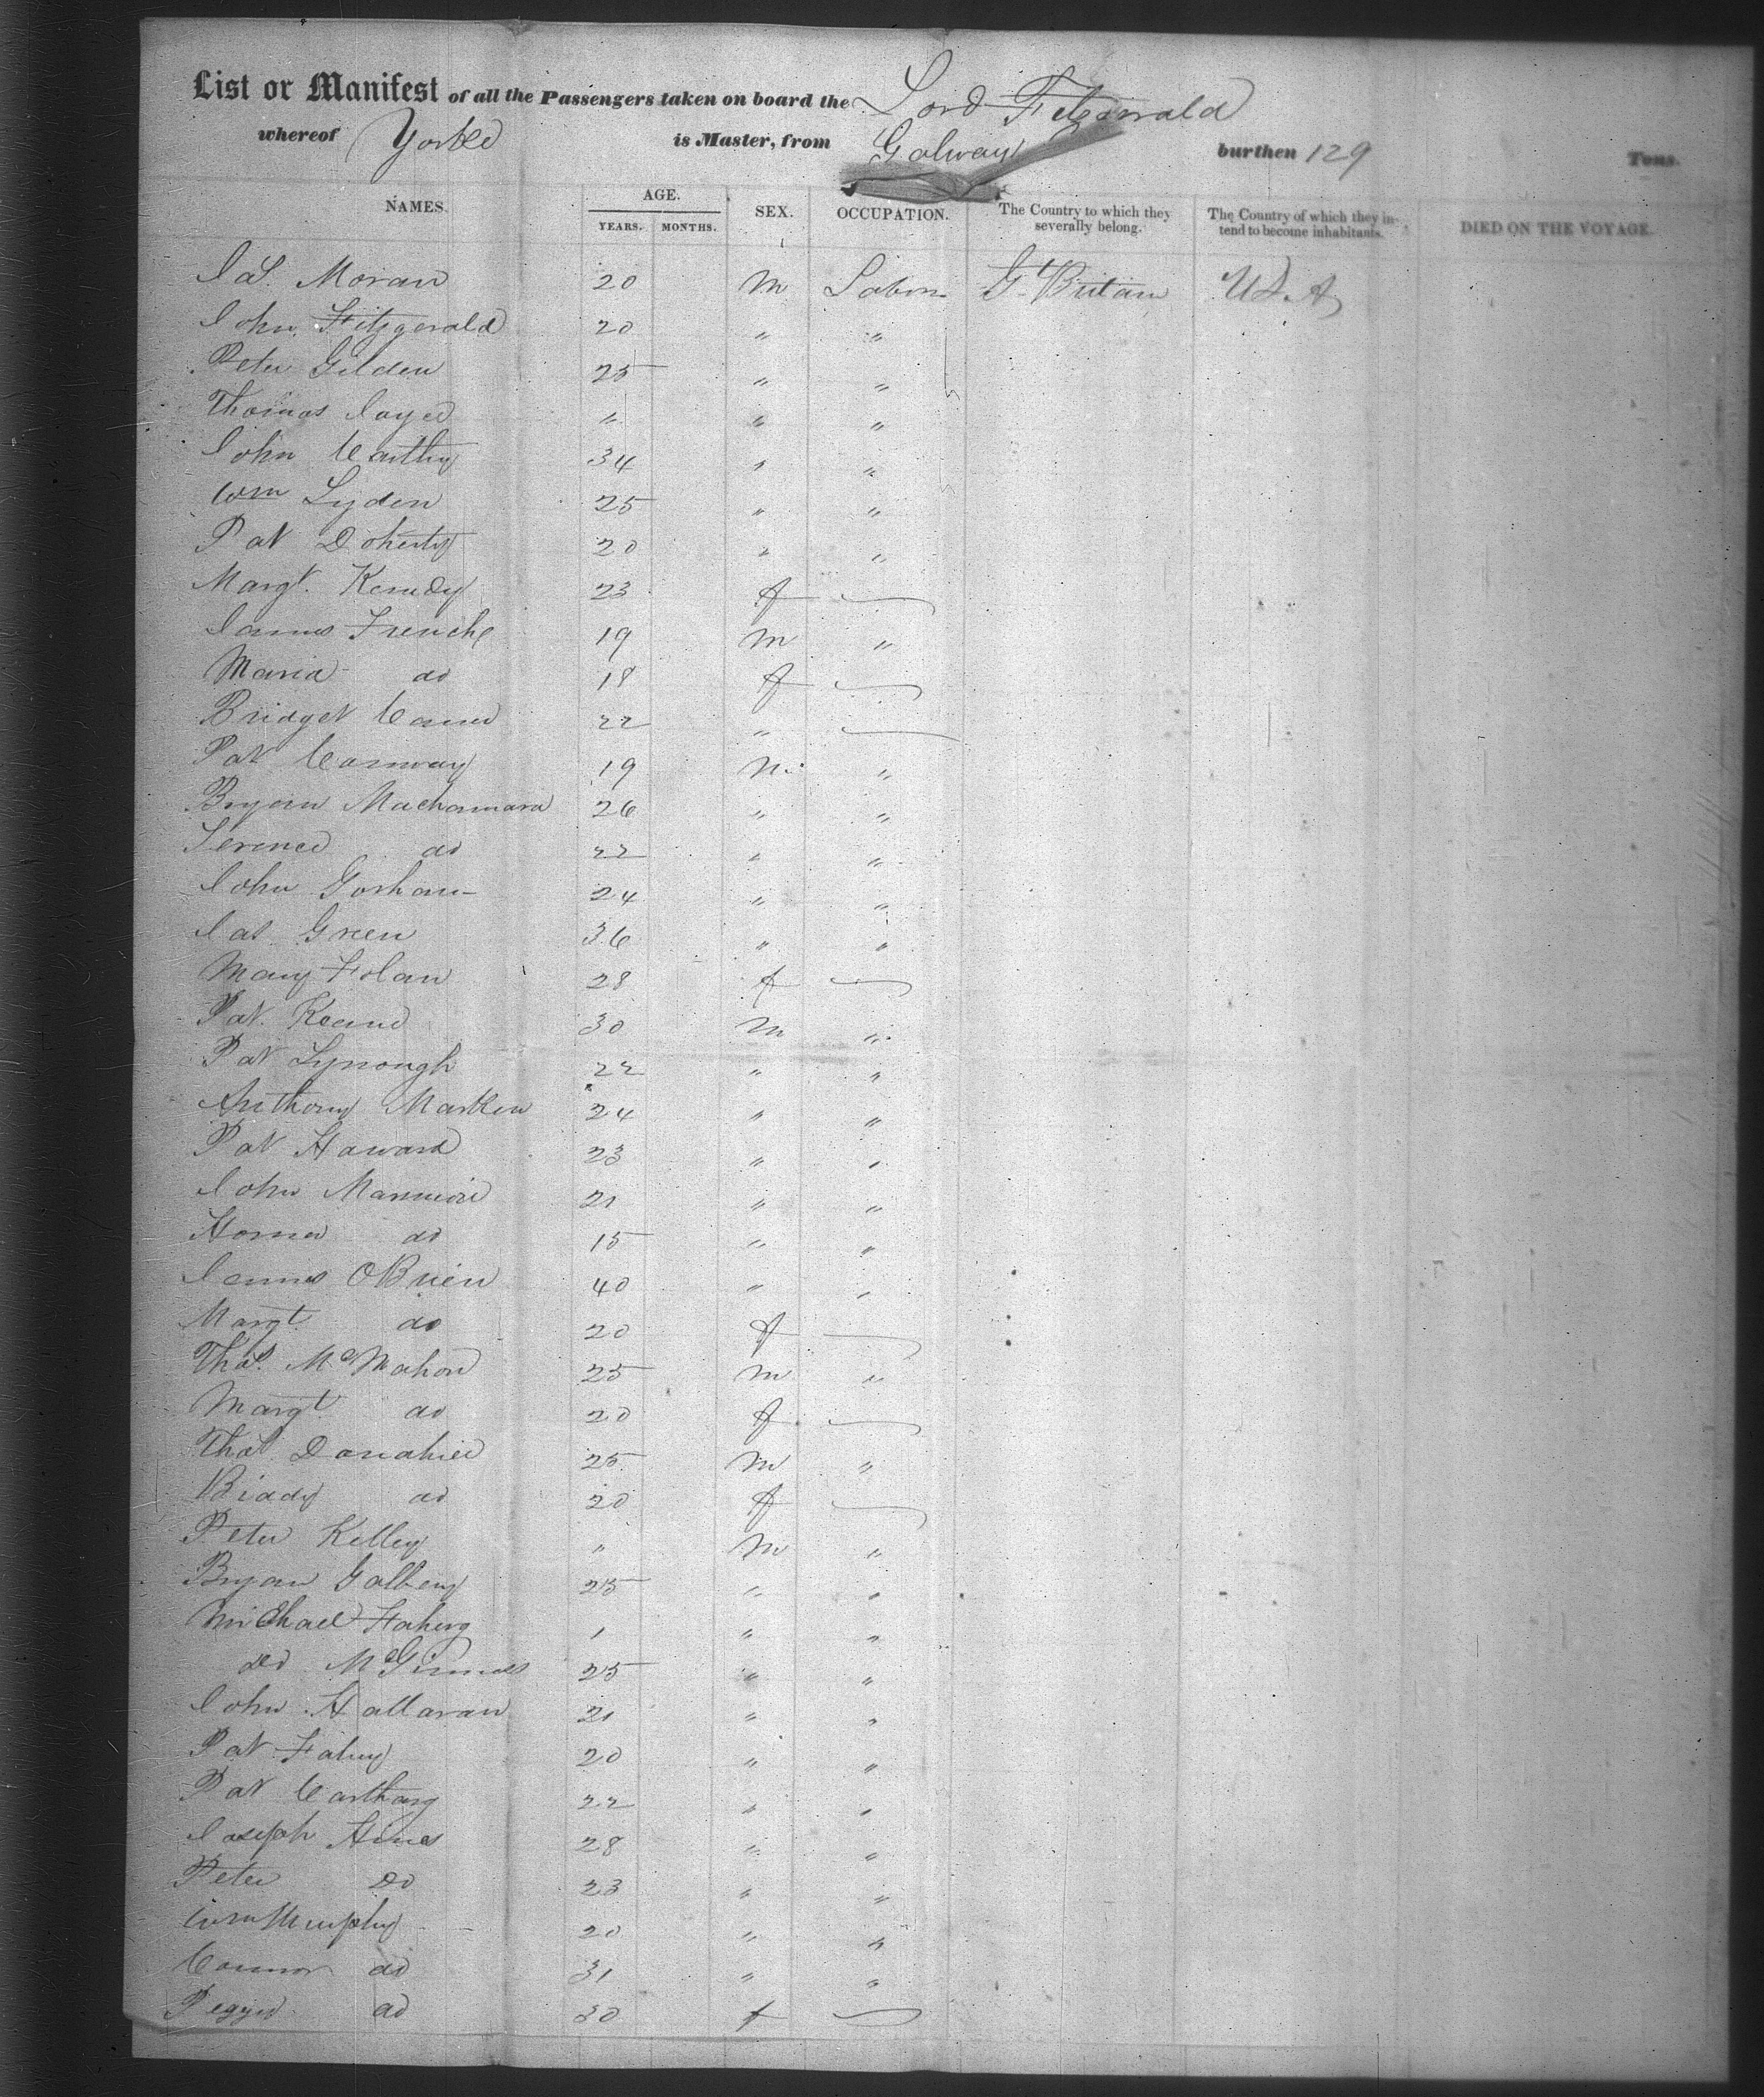 List or Manifest of all the Passengers taken on board the Lord Fitzgerald
whereof Yorke is Master, from Galway burthen 129 Tons.
NAMES. AGE. YEARS. MONTHS. SEX. OCCUPATION. The Country to which they severally belong. The Country of which they intend to become inhabitants. DIED ON THE VOYAGE.
Jas. Moran 20 m Labor G. Britain U.S.A
John Fitzgerald 20 " "
Peter Gilden 25 " "
Thomas Joyce " " "
John Carthy 34 " "
Wm Lyden 25 " "
Pat Doherty 20 " "
Margt. Kenedy 23 f
James Frenche 19 m "
Maria do 18 f
Bridget 22 "
Pat Conway 19 m "
Bryan Machamara 26 " "
Terence do 22 " "
John Gorham 24 " "
Jas Green 36 " "
Mary Folan 28 f
Pat. Keane 30 m "
Pat Lynough 22 " "
Anthony 24 " "
Pat Haward 23 " "
John Mannion 21 " "
do 15 " "
James OBrien 40 " "
Margt do 20 f
Thos. McMahon 25 m "
Margt do 20 f
Thos Donahue 25 m "
Biddy do 20 f
Peter Kelley " m "
Bryan 25 " "
Michael Faherg 1 " "
Do McGinness 25 " "
John Hallaran 21 " "
Pat Fahey 20 " "
Pat Carthay 22 " "
Joseph Hines 28 " "
Peter Do 23 " "
Wm Murphy 20 " "
Connor do 31 " "
Peggy do 30 f